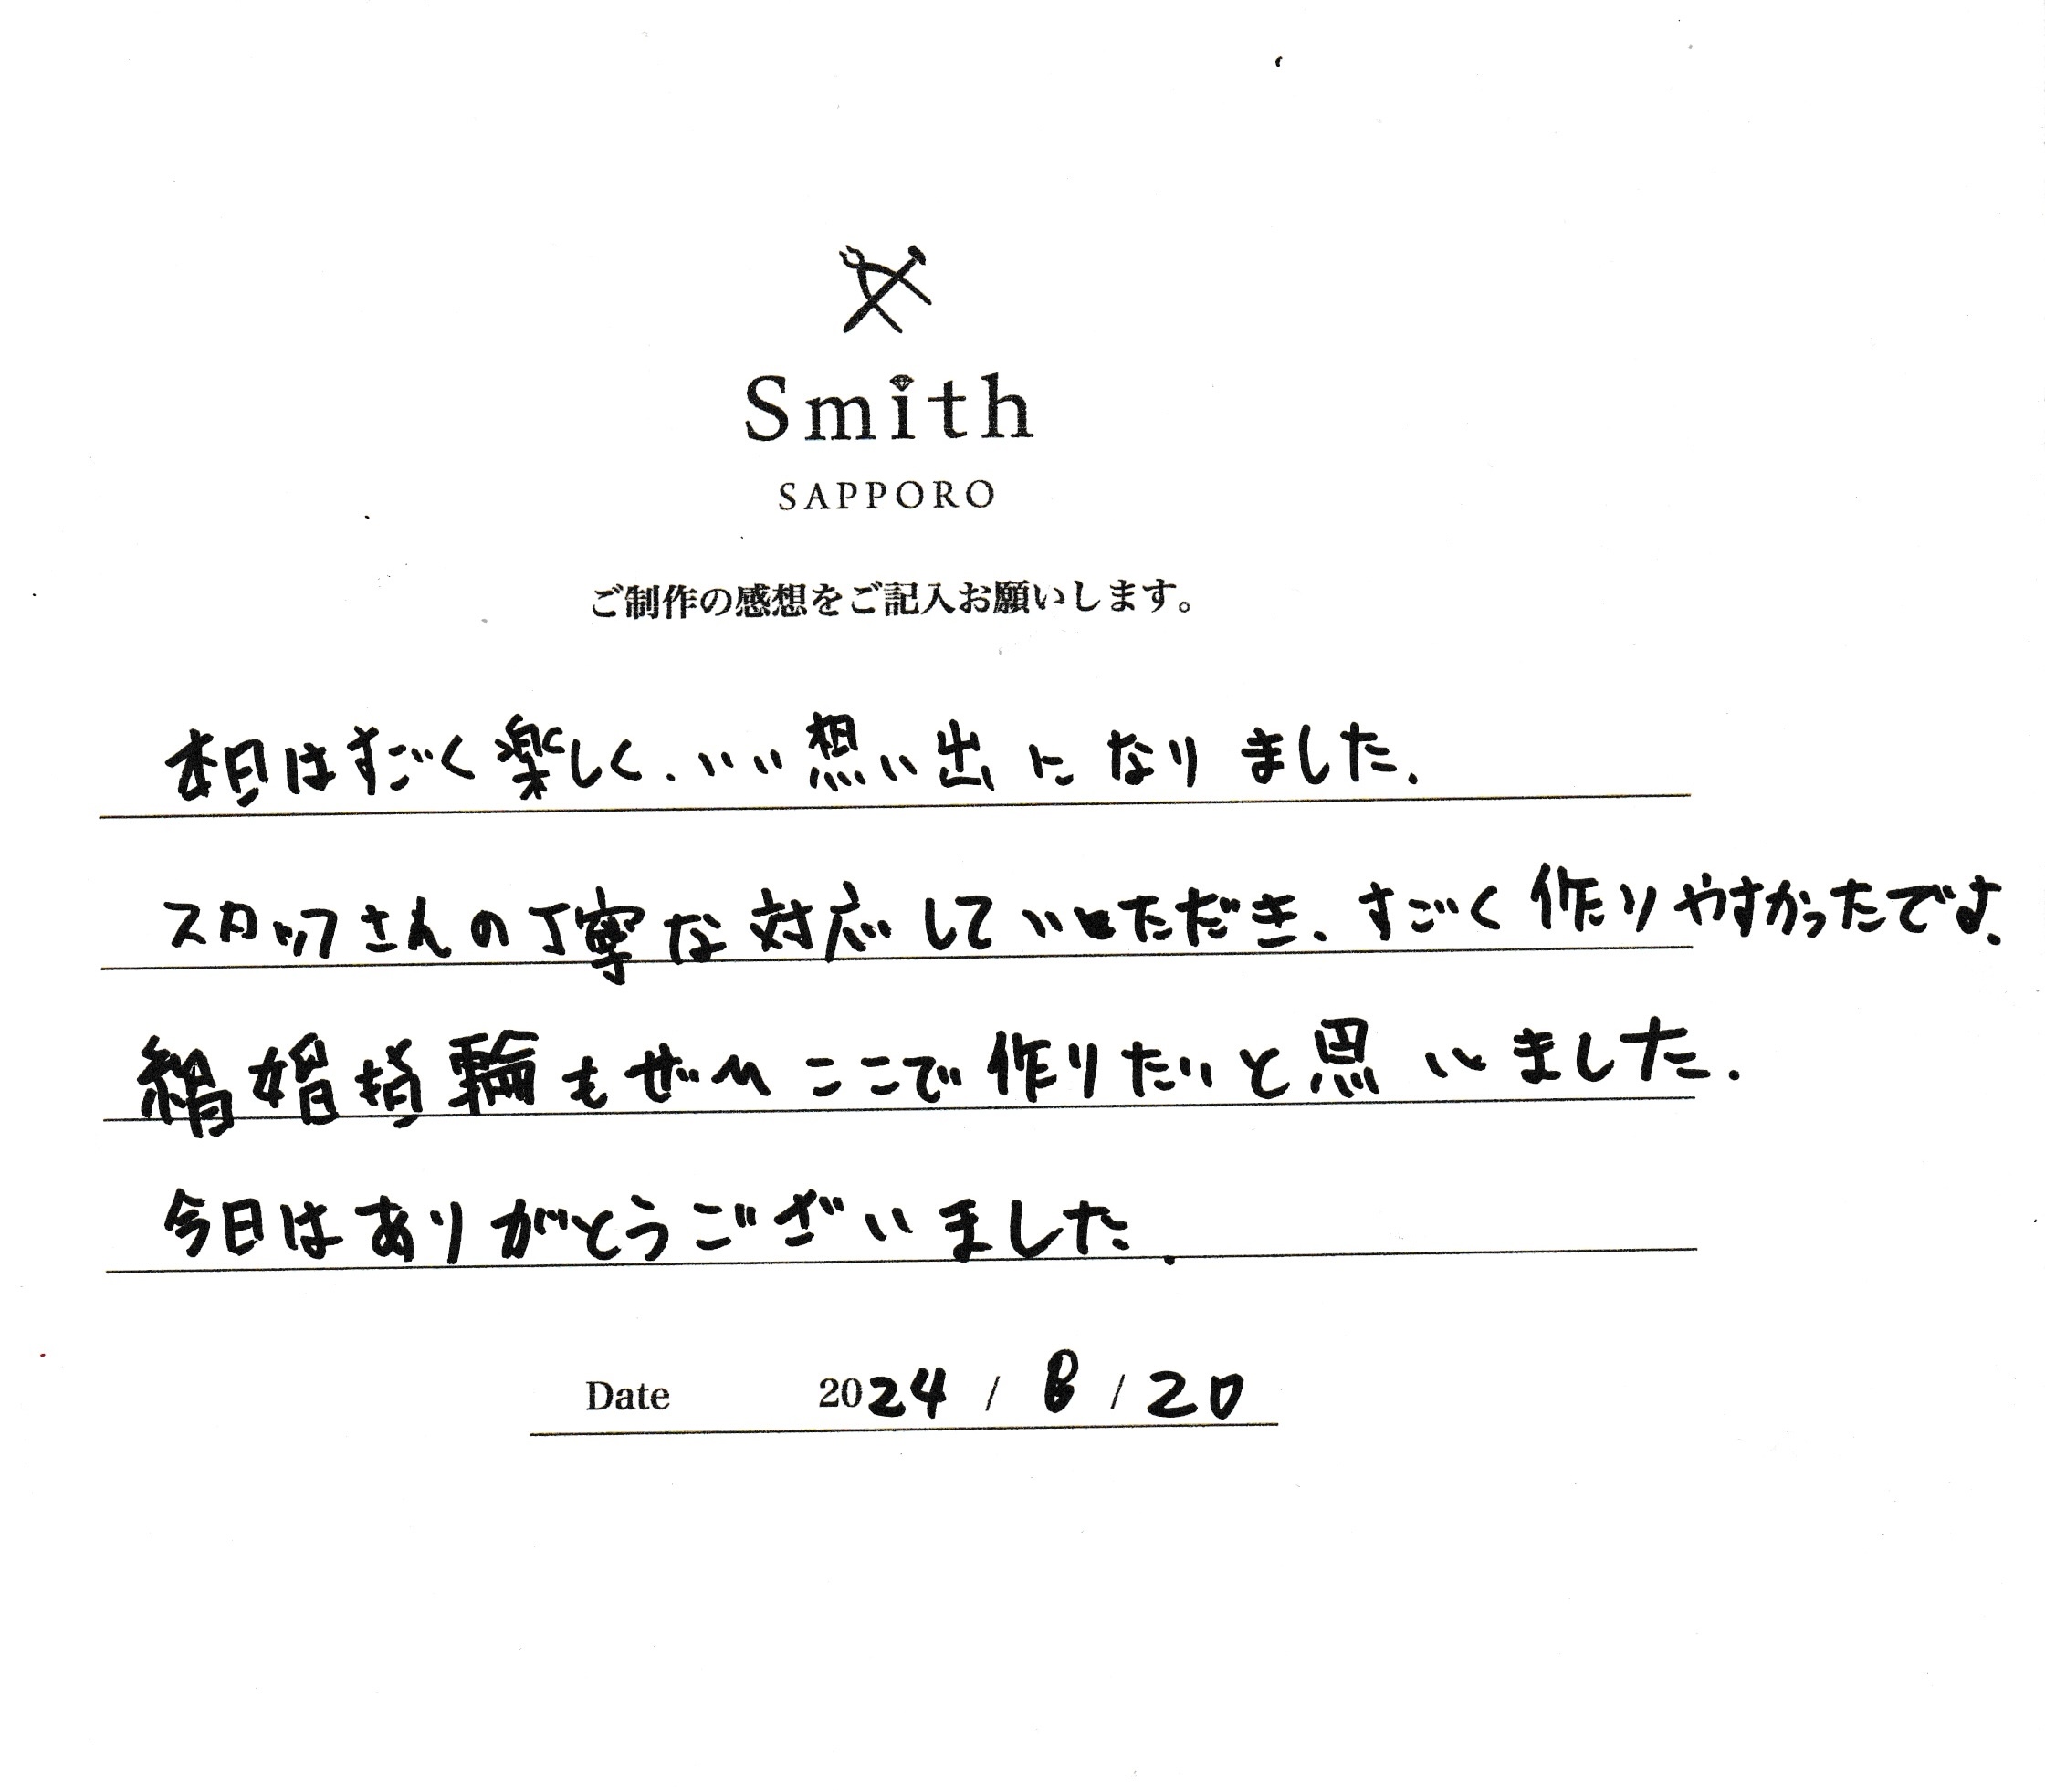 Smith
SAPPORO
ご制作の感想をご記入お願いします。
本日はすごく楽しく、いい想い出になりました.
スタッフさんの丁寧な対応していただき、すごく作りやすかったです.
結婚指輪もぜひここで作りたいと思いました.
今日はありがとうございました.
Date 2024 / 8 / 20